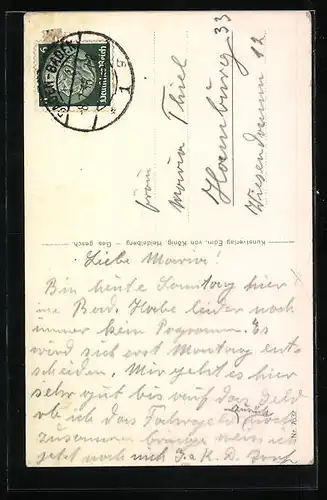 6
Deutsches Reich
BADEN-BADEN
Frau
Maria Thiel
Hamburg 33
Wiesendamm 12
Kunstverlag Edm. von König, Heidelberg — Ges. gesch.
Liebe Maria!
Bin heute Sonntag hier
in Bad. Habe leider noch
immer kein Programm. Es
wird sich erst Montag ent-
scheiden. Mir geht es hier
sehr gut bis auf das Geld
ob ich das Fahrgeld noch
zusammen bringe weiss ich
jetzt noch nich